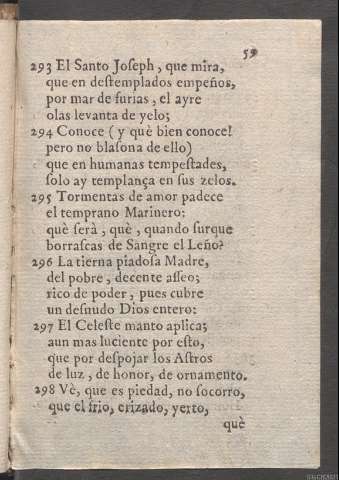 59
293 El Santo Joseph, que mira,
que en destemplados empeños,
por mar de furias, el ayre
olas levanta de yelo;
294 Conoce (y què bien conoce!
pero no blasona de ello)
que en humanas tempestades,
solo ay templança en sus zelos.
295 Tormentas de amor padece
el temprano Marinero:
què serà, què, quando surque
borrascas de Sangre el Leño?
296 La tierna piadosa Madre,
del pobre, decente asseo;
rico de poder, pues cubre
un desnudo Dios entero:
297 El Celeste manto aplica;
aun mas luciente por esto,
que por despojar los Astros
de luz, de honor, de ornamento.
298 Vè, que es piedad, no socorro,
que el frio, erizado, yerto,
què